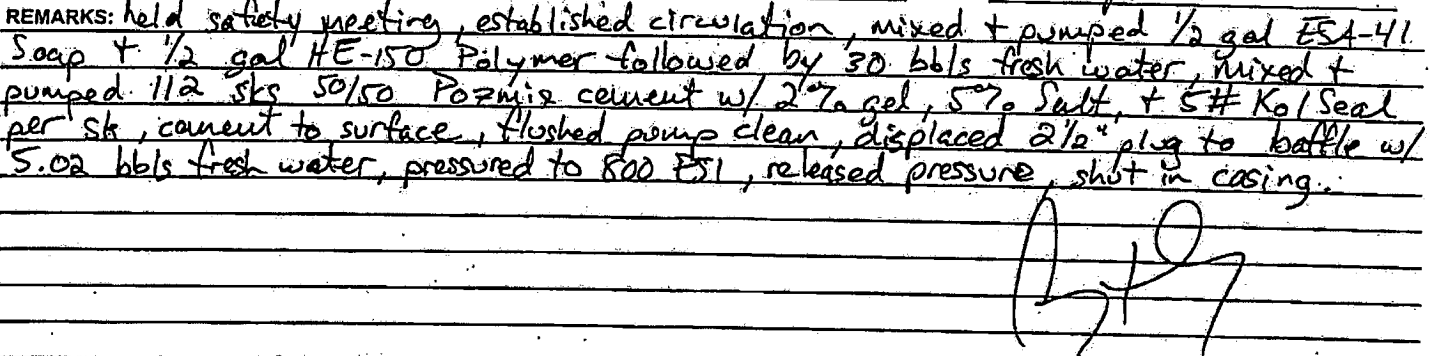 REMARKS: held safety meeting, established circulation, mixed + pumped 1/2 gal ESA-41
Soap + 1/2 gal HE-150 Polymer followed by 30 bbls fresh water, mixed +
pumped 112 sks 50/50 Pozmix cement w/ 2% gel, 5% Salt, + 5# Kol Seal
per sk, cement to surface, flushed pump clean, displaced 2 1/2" plug to baffle w/
5.02 bbls fresh water, pressured to 800 PSI, released pressure, shut in casing.